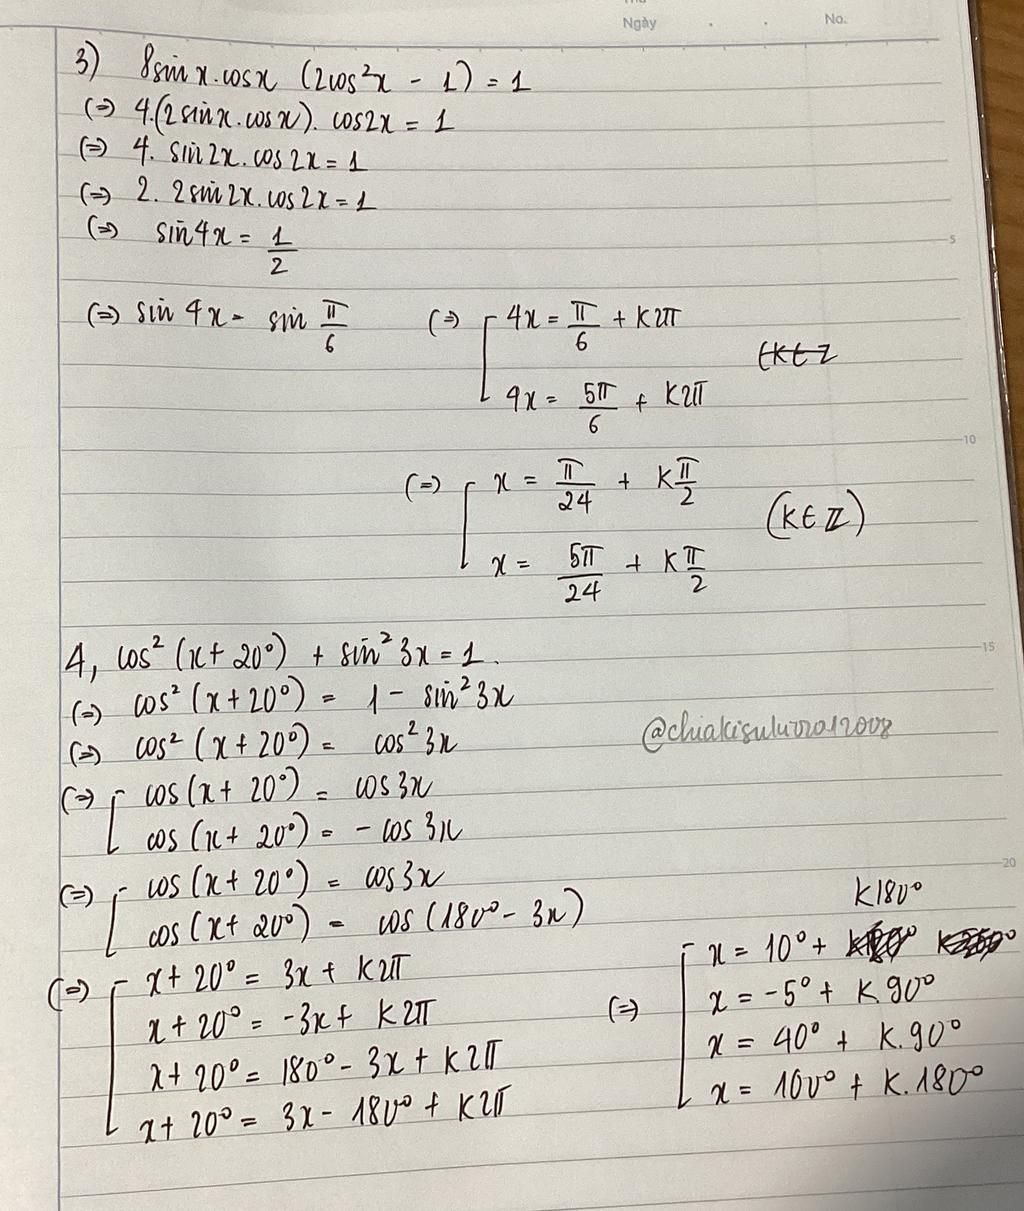 Ngày No.
3) 8sin x.cosx (2cos²x - 1) = 1
(=) 4.(2sinx.cosx). cos2x = 1
(=) 4. sin2x.cos2x = 1
(=) 2. 2sin2x.cos2x = 1
(=) sin4x = 1/2
5
(=) sin 4x = sin π/6 (=) [ 4x = π/6 + K2π
4x = 5π/6 + K2π
10
(=) [ x = π/24 + Kπ/2
(K∈Z)
x = 5π/24 + Kπ/2
4, cos² (x + 20°) + sin² 3x = 1.
15
(=) cos² (x + 20°) = 1 - sin²3x
(=) cos² (x + 20°) = cos²3x
(=) [ cos (x + 20°) = cos3x
cos (x + 20°) = - cos 3x
20
(=) [ cos (x + 20°) = cos3x
cos (x + 20°) = cos (180° - 3x)
(=) [ x + 20° = 3x + K2π
x + 20° = -3x + K2π
x + 20° = 180° - 3x + K2π
x + 20° = 3x - 180° + K2π
K180°
(=) [ x = 10° +
x = -5° + K.90°
x = 40° + K.90°
x = 100° + K.180°